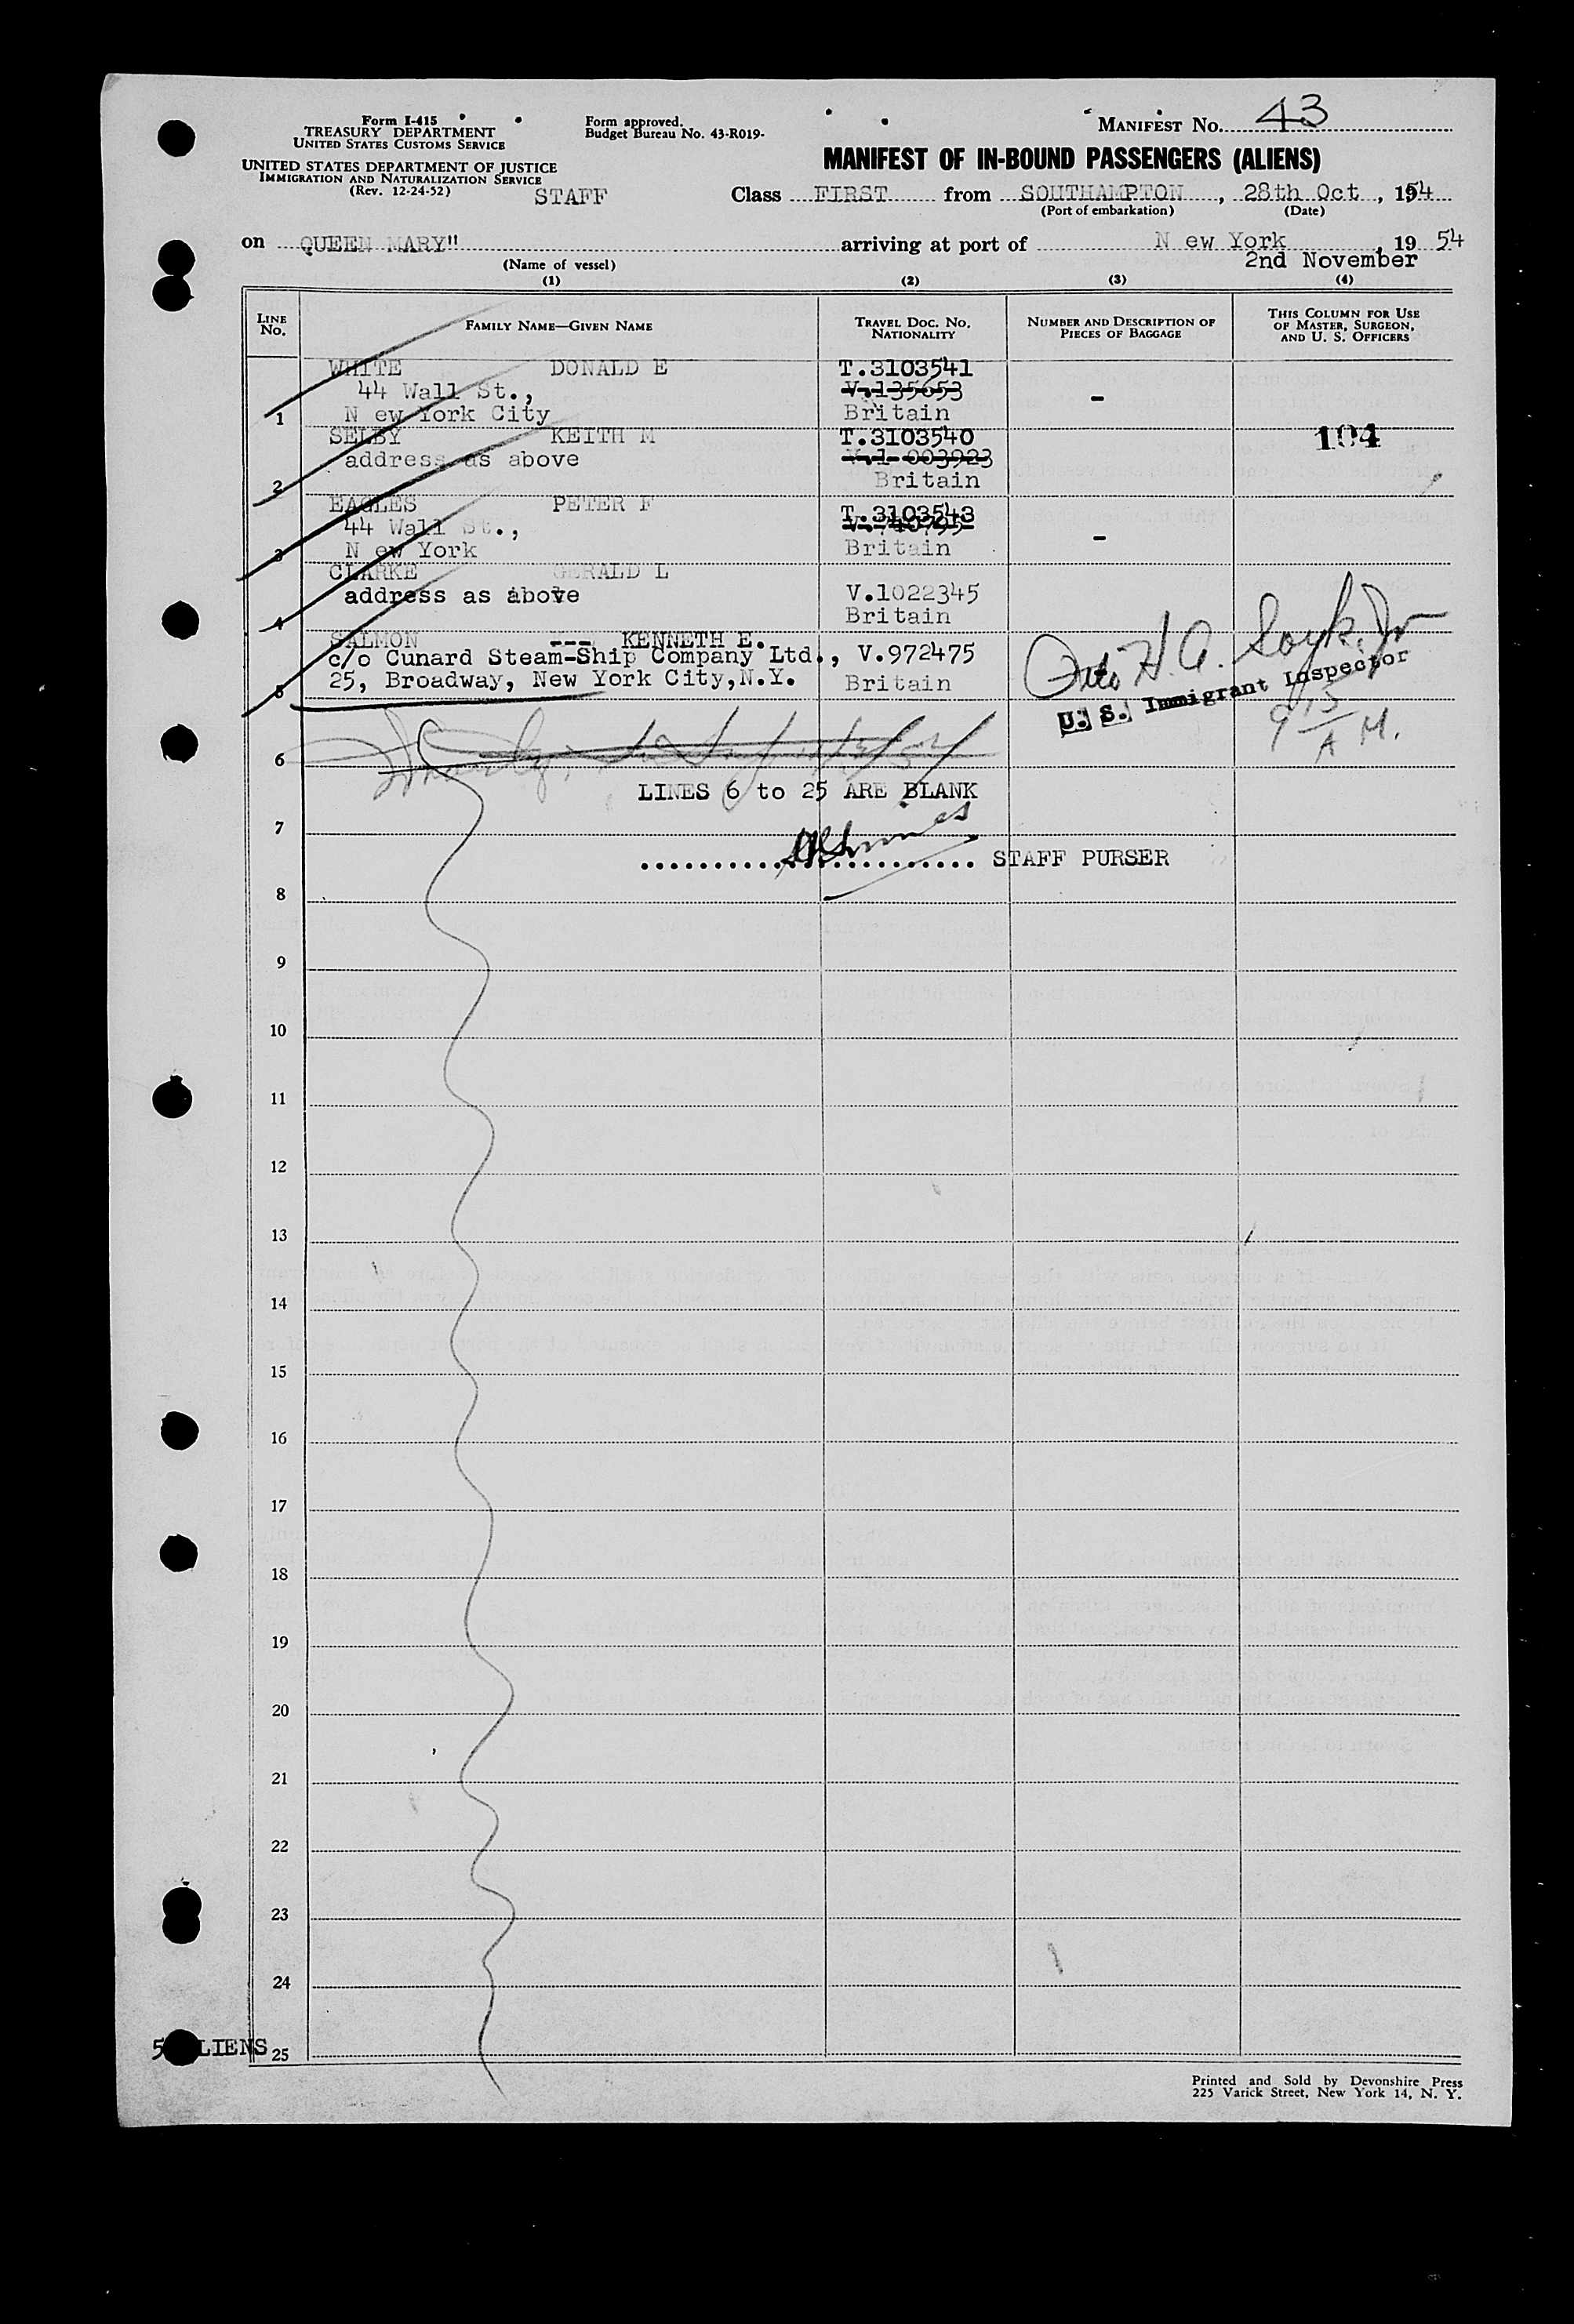 Form I-415
TREASURY DEPARTMENT
UNITED STATES CUSTOMS SERVICE
UNITED STATES DEPARTMENT OF JUSTICE
IMMIGRATION AND NATURALIZATION SERVICE
(Rev. 12-24-52)
STAFF
Form approved.
Budget Bureau No. 43-R019-
MANIFEST NO. 43
MANIFEST OF IN-BOUND PASSENGERS (ALIENS)
Class FIRST from SOUTHAMPTON, 28th Oct, 1954
(Port of embarkation) (Date)
on QUEEN MARY" arriving at port of N ew York, 19 54
(Name of vessel) 2nd November
(1) (2) (3) (4)
LINE NO. FAMILY NAME—GIVEN NAME TRAVEL DOC. NO. NATIONALITY NUMBER AND DESCRIPTION OF PIECES OF BAGGAGE THIS COLUMN FOR USE OF MASTER, SURGEON, AND U. S. OFFICERS
WHITE DONALD E T.3103541
44 Wall St., V.135653 -
1 N ew York City Britain
SELBY KEITH M T.3103540 104
address as above V.1 003923
2 Britain
EAGLES PETER F T.3103543
44 Wall St.,
3 N ew York Britain -
CLARKE GERALD L
address as above V.1022345
4 Britain
SALMON --- KENNETH E.
c/o Cunard Steam-Ship Company Ltd., V.972475
5 25, Broadway, New York City,N.Y. Britain
U. S. Immigrant Inspector
9 15 A M.
6
LINES 6 to 25 ARE BLANK
7
STAFF PURSER
8
9
10
11
12
13
14
15
16
17
18
19
20
21
22
23
24
5 ALIENS 25
Printed and Sold by Devonshire Press
225 Varick Street, New York 14, N. Y.